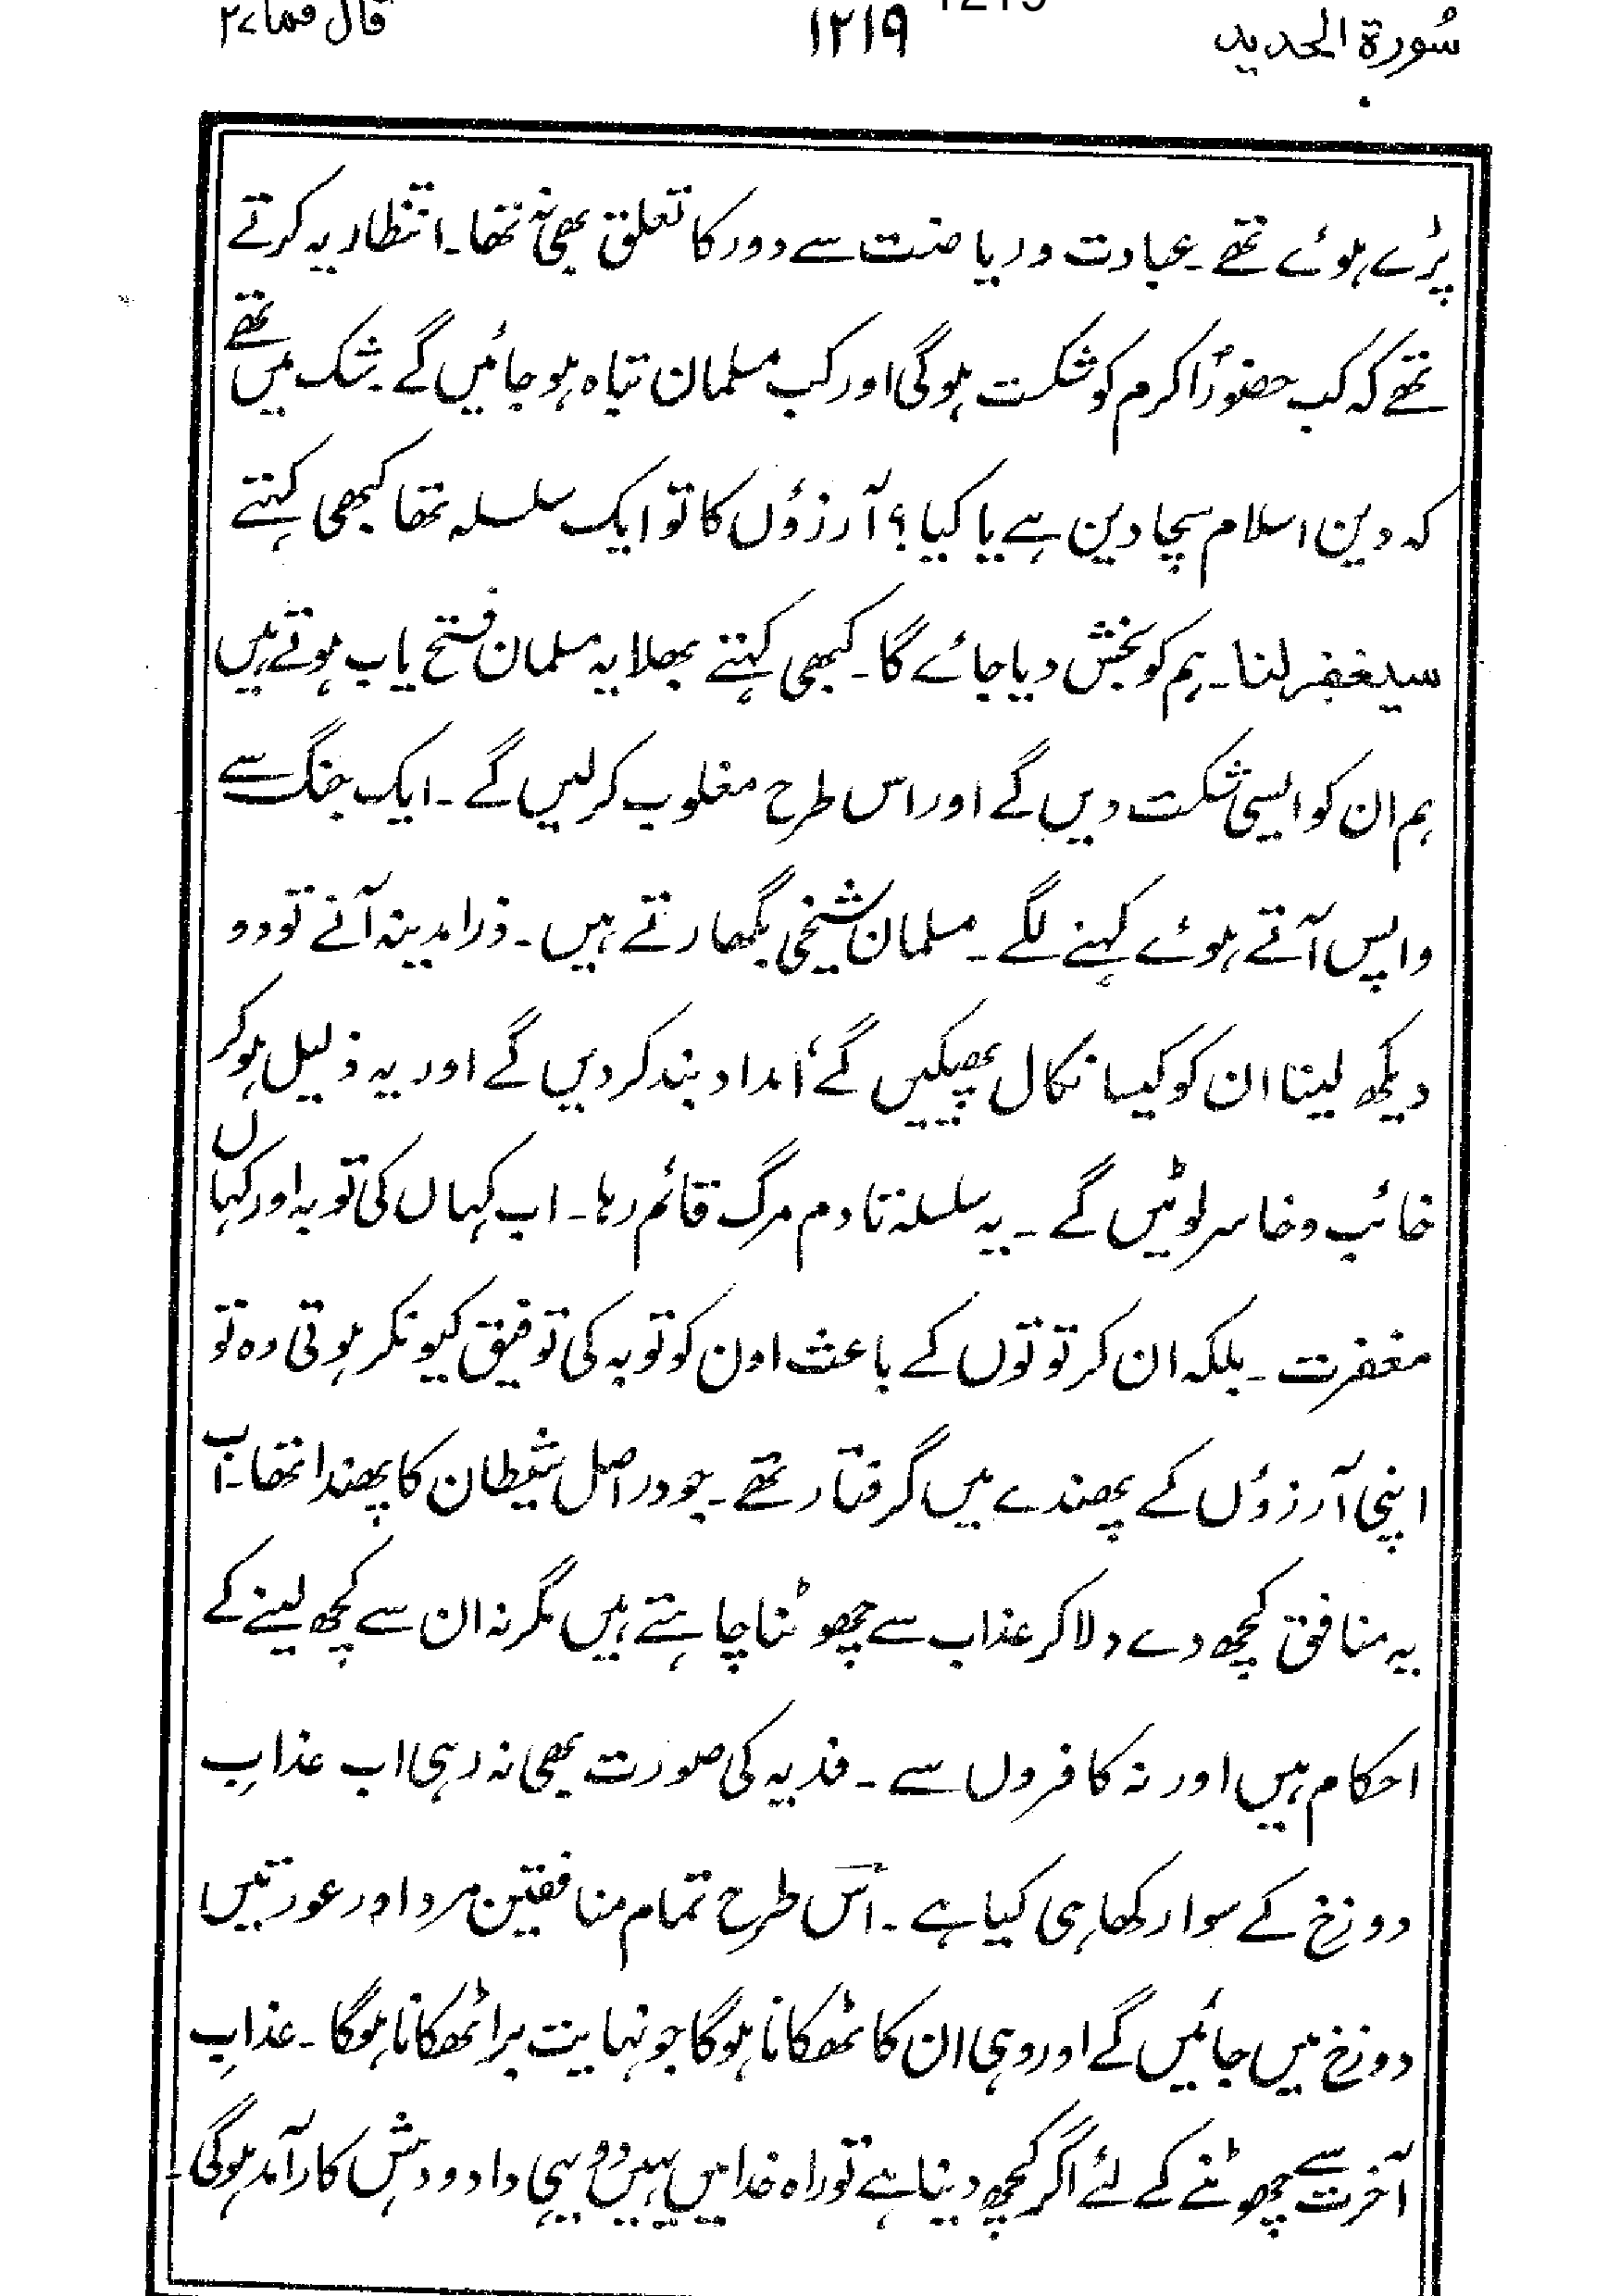 سُورة الحدید ۱۲۱۹ قال فما ۲۷
پڑے ہوئے تھے۔ عبادت و ریاضت سے دور کا تعلق بھی نہ تھا۔ انتظار یہ کرتے
تھے کہ کب حضورؐ اکرم کو شکست ہوگی اور کب مسلمان تباہ ہو جائیں گے۔ شک میں تھے
کہ دین اسلام سچا دین ہے یا کیا؟ آرزؤں کا تو ایک سلسلہ تھا کبھی کہتے
سیغفر لنا۔ ہم کو بخش دیا جائے گا۔ کبھی کہتے بھلا یہ مسلمان فتح یاب ہوتے ہیں
ہم ان کو ایسی شکست دیں گے اور اس طرح مغلوب کر لیں گے۔ ایک جنگ سے
واپس آتے ہوئے کہنے لگے۔ مسلمان شیخی بگھارتے ہیں۔ ذرا مدینہ آنے تو دو
دیکھ لینا ان کو کیسا نکال پھینکیں گے، امداد بند کر دیں گے اور یہ ذلیل ہو کر
خائب و خاسر لوٹیں گے۔ یہ سلسلہ تا دم مرگ قائم رہا۔ اب کہاں کی توبہ اور کہاں
مغفرت۔ بلکہ ان کرتوتوں کے باعث اون کو توبہ کی توفیق کیونکر ہوتی وہ تو
اپنی آرزؤں کے پھندے میں گرفتار تھے۔ جو دراصل شیطان کا پھندا تھا۔ اب
یہ منافق کچھ دے دلا کر عذاب سے چھوٹنا چاہتے ہیں مگر نہ ان سے کچھ لینے کے
احکام ہیں اور نہ کافروں سے۔ فدیہ کی صورت بھی نہ رہی اب عذابِ
دوزخ کے سوا رکھا ہی کیا ہے۔ اس طرح تمام منافقین مرد اور عورتیں
دوزخ میں جائیں گے اور وہی ان کا ٹھکانا ہوگا جو نہایت برا ٹھکانا ہوگا۔ عذابِ
آخرت سے چھوٹنے کے لئے اگر کچھ دینا ہے تو راہ خدا میں یہیں دو یہی داد و دہش کارآمد ہوگی۔